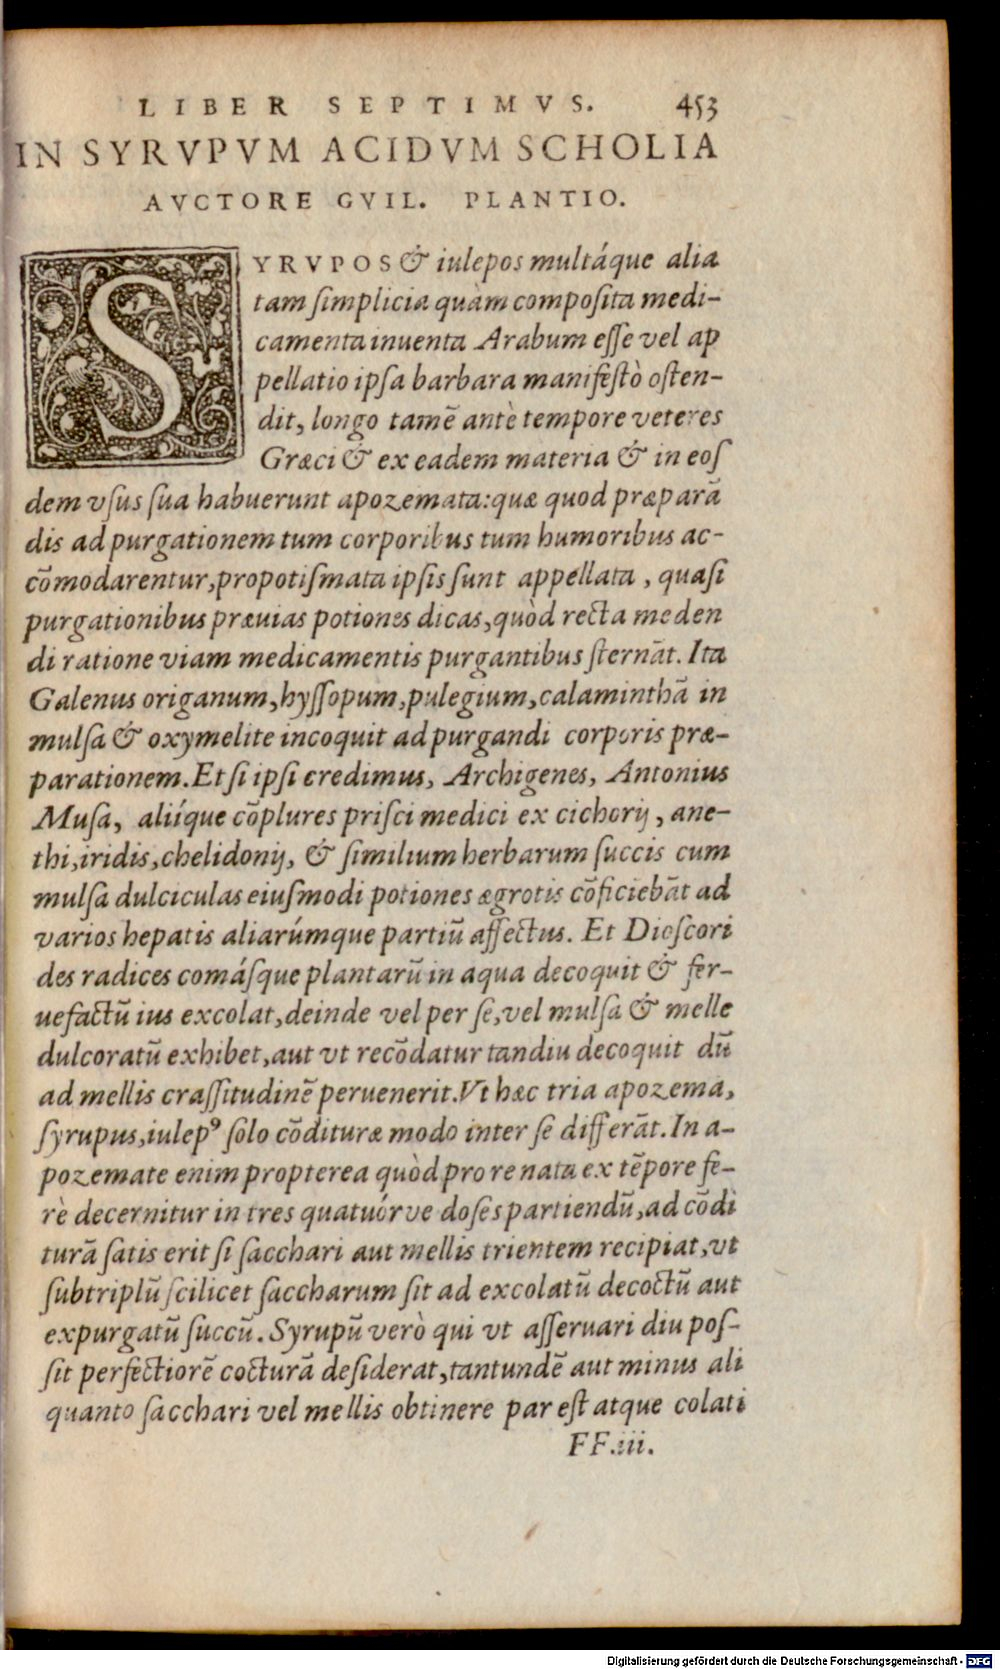 LIBER SEPTIMVS. 453
IN SYRVPVM ACIDVM SCHOLIA
AVCTORE GVIL. PLANTIO.
SYRVPOS & iulepos multáque alia
tam ſimplicia quàm compoſita medi-
camenta inuenta Arabum eſſe vel ap
pellatio ipſa barbara manifeſtò oſten-
dit, longo tamē antè tempore veteres
Græci & ex eadem materia & in eoſ
dem vſus ſua habuerunt apozemata: quæ quod præparā
dis ad purgationem tum corporibus tum humoribus ac-
cōmodarentur, propotiſmata ipſis ſunt appellata, quaſi
purgationibus præuias potiones dicas, quòd recta meden
di ratione viam medicamentis purgantibus ſternāt. Ita
Galenus origanum, hyſſopum, pulegium, calaminthā in
mulſa & oxymelite incoquit ad purgandi corporis præ-
parationem. Et ſi ipſi credimus, Archigenes, Antonius
Muſa, aliíque cōplures priſci medici ex cichorij, ane-
thi, iridis, chelidonij, & ſimilium herbarum ſuccis cum
mulſa dulciculas eiuſmodi potiones ægrotis cōficiebāt ad
varios hepatis aliarúmque partiū affectus. Et Dioſcori
des radices comáſque plantarū in aqua decoquit & fer-
uefactū ius excolat, deinde vel per ſe, vel mulſa & melle
dulcoratū exhibet, aut vt recōdatur tandiu decoquit dū
ad mellis craſſitudinē peruenerit. Vt hæc tria apozema,
ſyrupus, iulepꝰ ſolo cōdituræ modo inter ſe differāt. In a-
pozemate enim propterea quòd pro re nata ex tēpore fe-
rè decernitur in tres quatuórve doſes partiendū, ad cōdi
turā ſatis erit ſi ſacchari aut mellis trientem recipiat, vt
ſubtriplū ſcilicet ſaccharum ſit ad excolatū decoctū aut
expurgatū ſuccū. Syrupū verò qui vt aſſeruari diu poſ-
ſit perfectiorē cocturā deſiderat, tantundē aut minus ali
quanto ſacchari vel mellis obtinere par eſt atque colati
FF.iii.
Digitalisierung gefördert durch die Deutsche Forschungsgemeinschaft - DFG